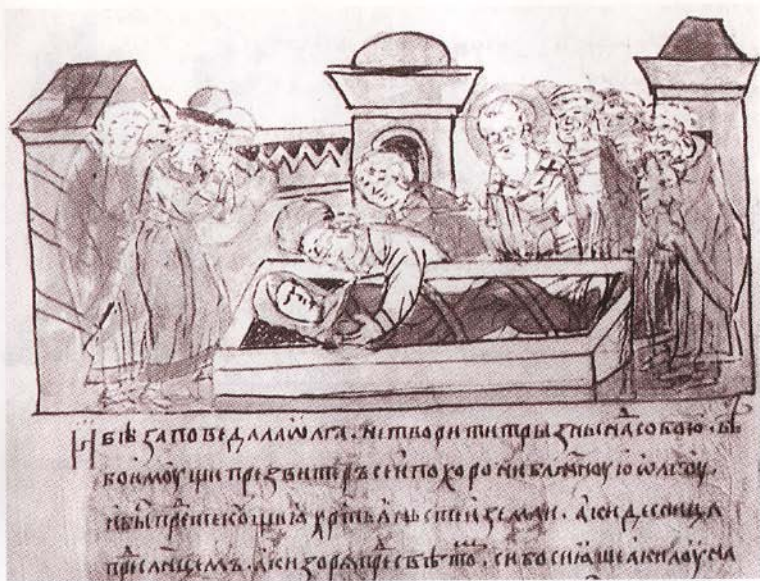 И бѣ заповедала ѡлга. не творити трызны наⷣ собою. бѣ
бо имоущи презвитеръ сеи похорони блж҃ноую ѡлгоу.
и бы прⷣтекоущиа хрⷭ҇тьаньстеи земли. аки десница
прⷣ слн҃цемъ. аки зорѧ прⷣ свѣтоⷨ. си бо сиаше аки лоуна